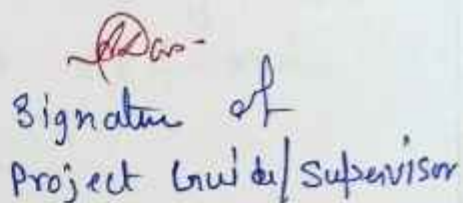 Das
Signature of
Project Guide/Supervisor